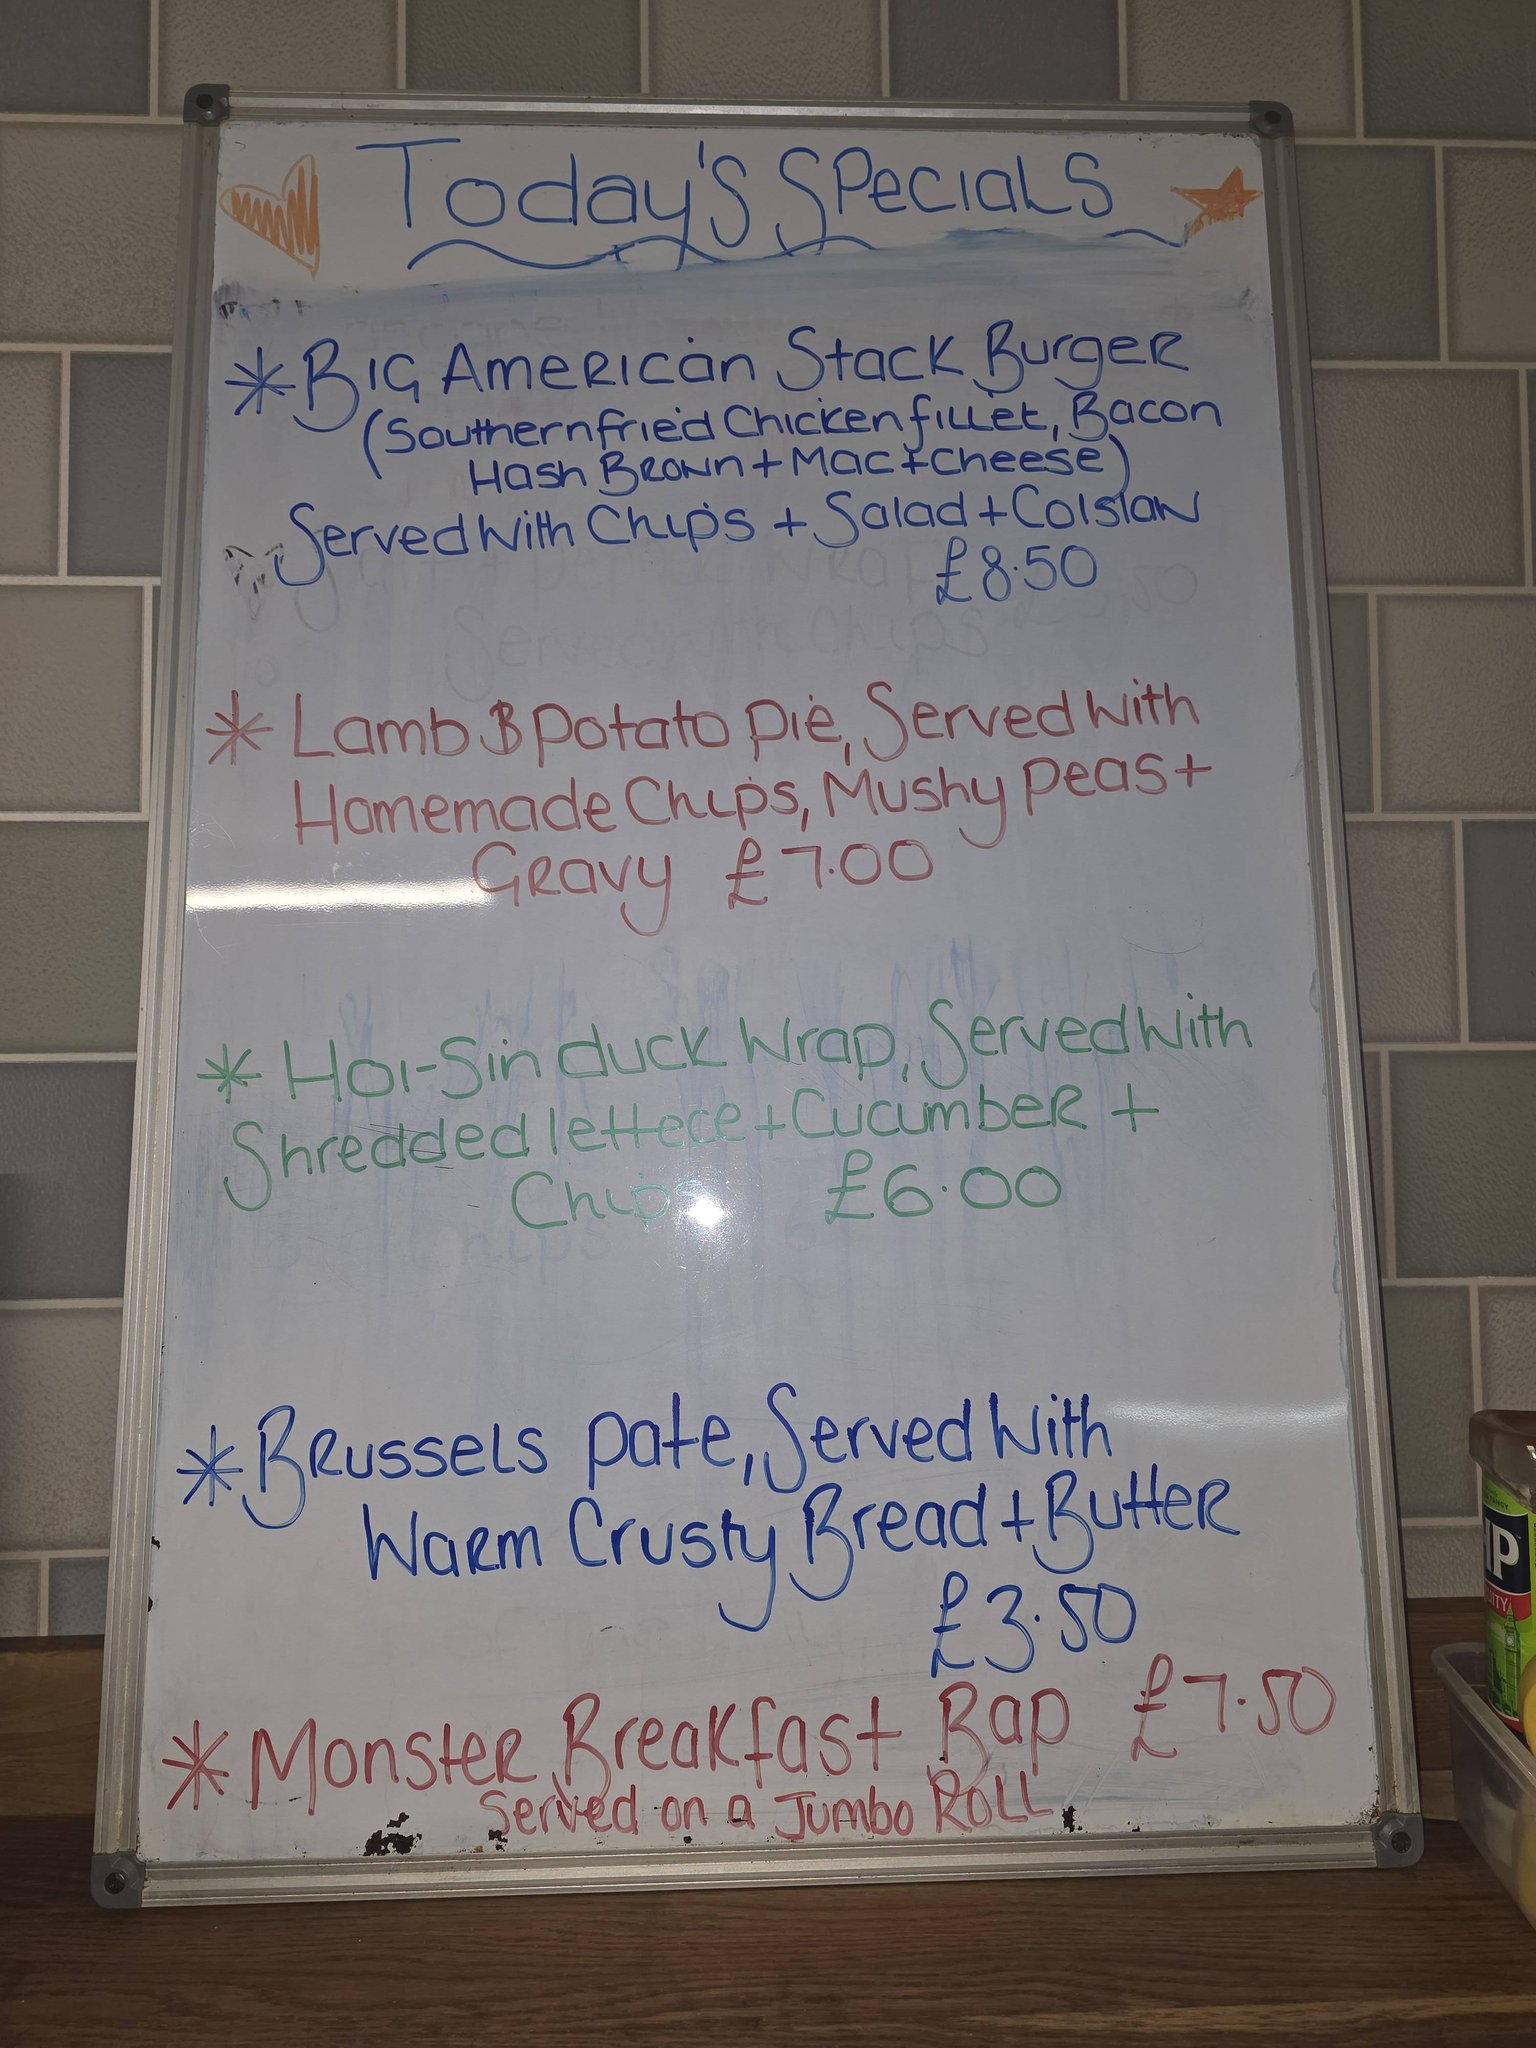 Today's Specials
* Big American Stack Burger
(Southern fried Chicken fillet, Bacon
Hash Brown + Mac + cheese)
Served With Chips + Salad + Colslaw
£8.50
Served with Chips
* Lamb & Potato Pie, Served With
Homemade Chips, Mushy Peas +
Gravy £7.00
* Hoi-Sin duck Wrap, Served With
Shredded lettece + Cucumber +
Chips £6.00
* Brussels Pate, Served With
Warm Crusty Bread + Butter
£3.50
* Monster Breakfast Bap £7.50
Served on a Jumbo Roll
P